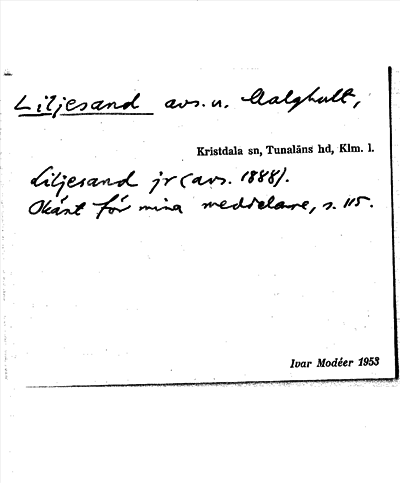 Liljesand avs. u. Aalghult,
Kristdala sn, Tunaläns hd, Klm. l.
Liljesand jr (avs. 1888).
Okänt för mina meddelare, s. 115.
Ivar Modéer 1953